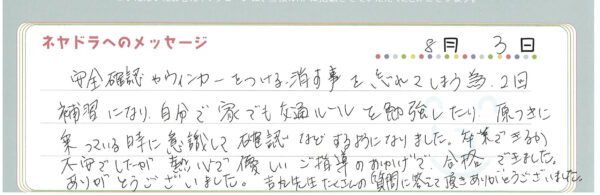 ネヤドラへのメッセージ
8月 3日
安全確認やウィンカーをつける、消す事を、忘れてしまう為、2回
補習になり、自分で家でも交通ルールを勉強したり 原つきに
乗っている時に意識して確認などするようになりました。卒業できるか
不安でしたが 熱心で優しいご指導のおかげで、合格できました。
ありがとうございました。 先生たくさんの質問に答えて頂きありがとうございました。